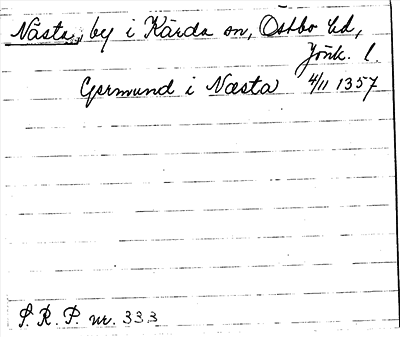 Nästa, by i Kärda sn, Östbo hd,
Jönk. l.
Germund i Næsta 4/11 1357
S. R. P. nr. 333